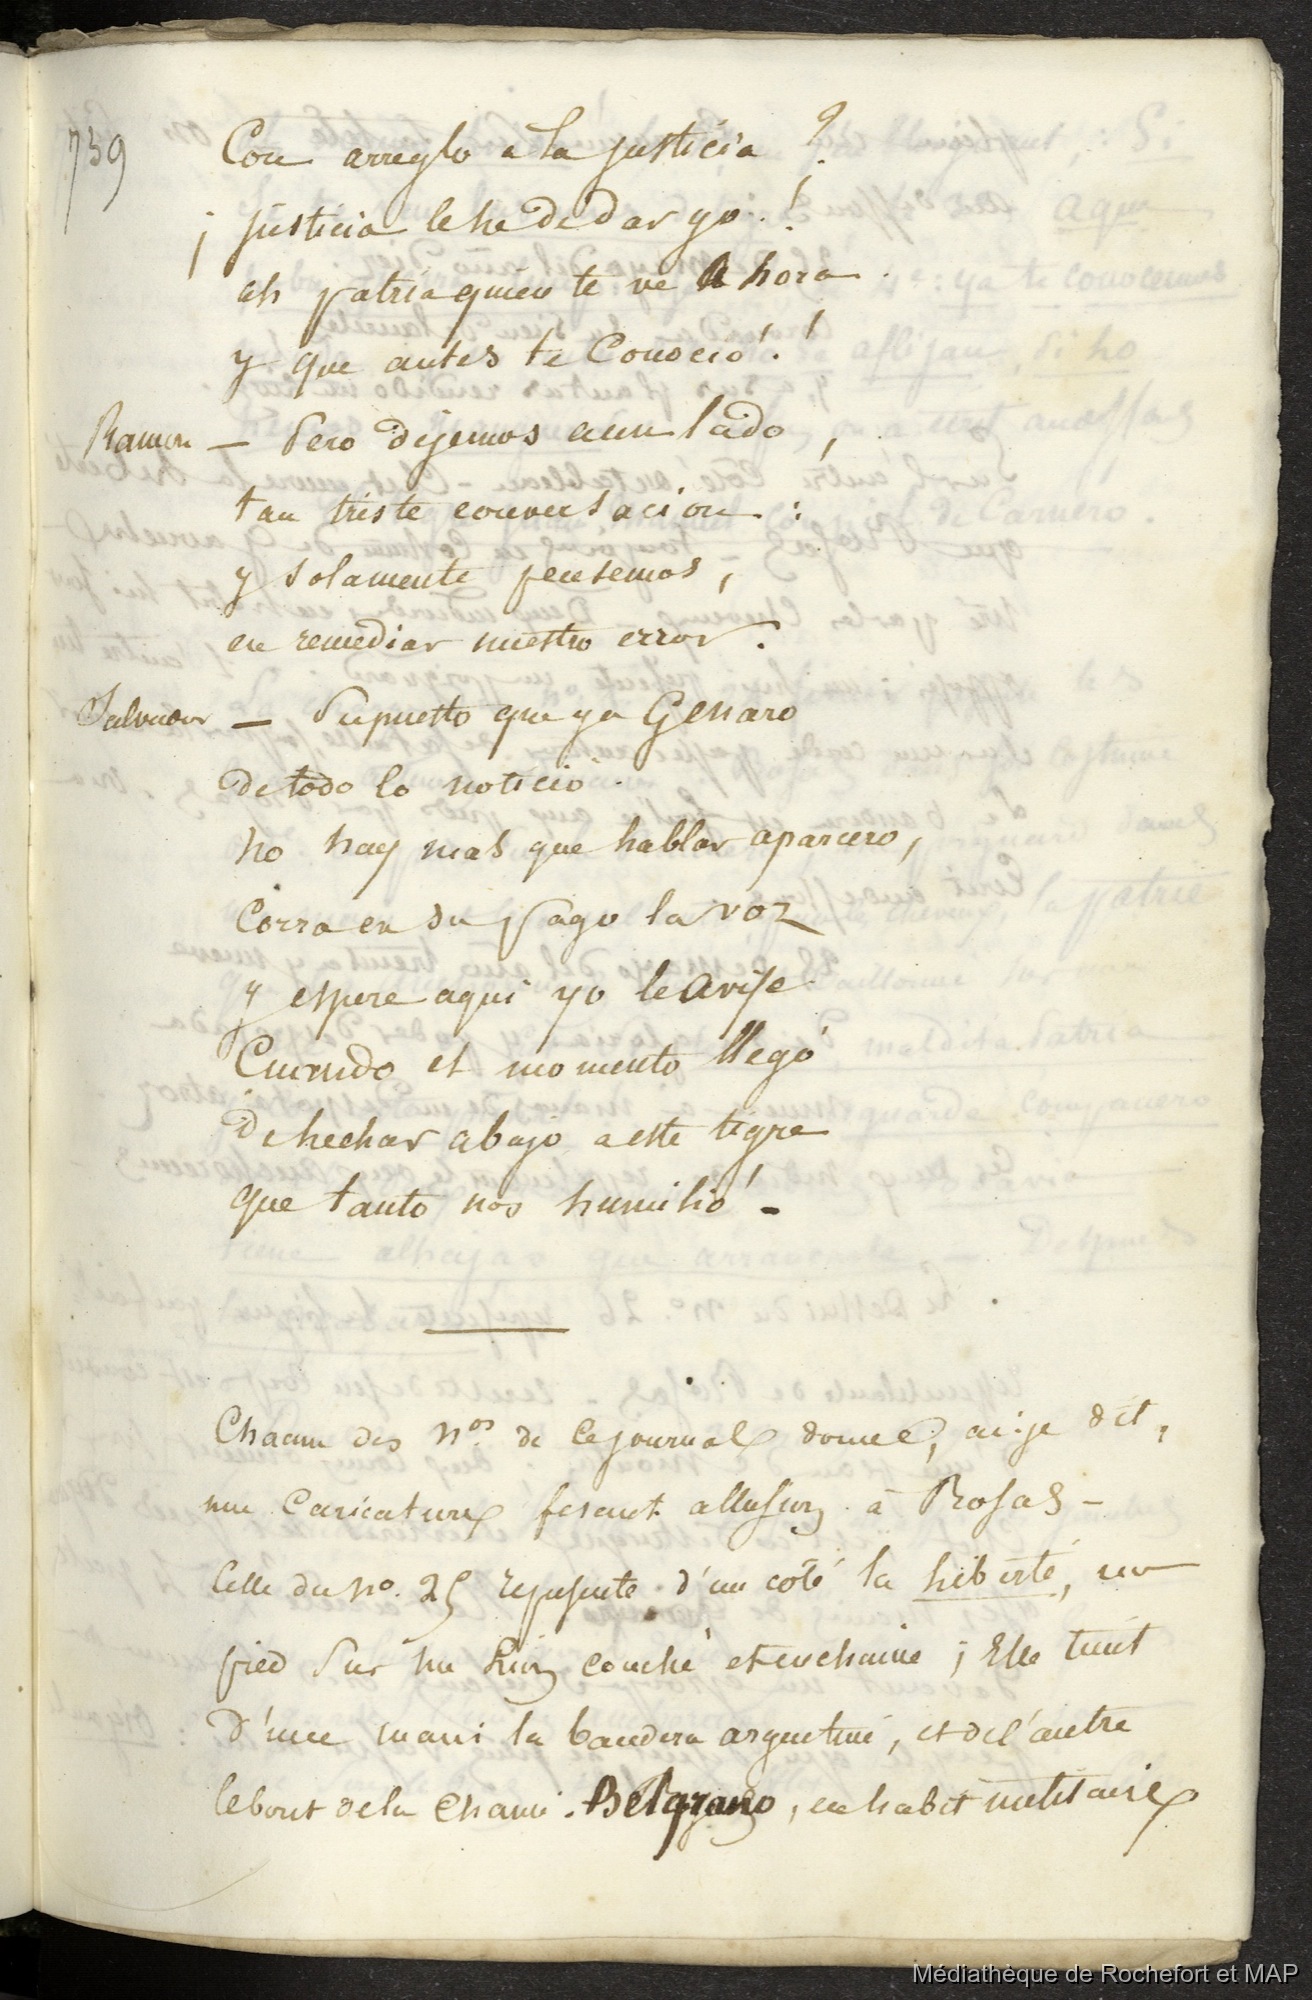 739
Con arreglo a la justicia ?
¡ justicia le he de dar yo . !
ah patria quien te ve Ahora
y que antes te Conoció . !
Ramon — Pero dejemos a un lado ,
tan triste conversacion :
y solamente pensemos ,
en remediar nuestro error .
Salvador — Supuesto que ya Genaro
De todo lo noticio
no hay mas que hablar aparcero ,
Corra en su pago la voz
y espere aqui yo le avise
Cuando el momento llegó
De hechar abajo a este tigre
que tanto nos humilió —
Chacun des Nos. de ce journal donne, ai-je dit,
une Caricature fesant allusion à Rosas —
Celle du No. 25 represente d'un côté la liberté, un
pied sur un Lion couché et enchainé ; Elle tient
D'une main la bandera argentine, et de l'autre
le bout de la chaine . Belgrano , en habit militaire
Médiathèque de Rochefort et MAP